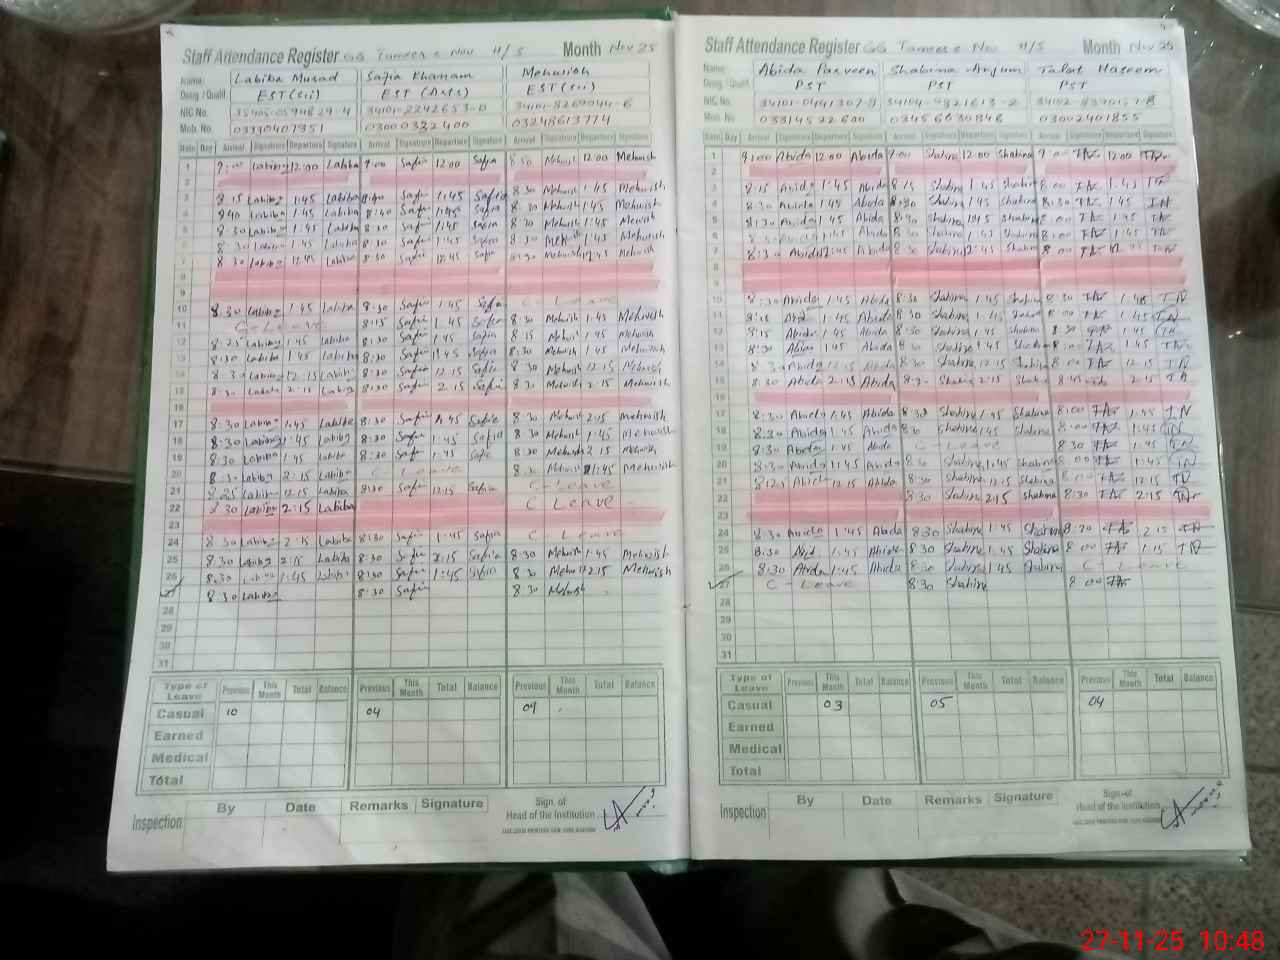 Staff Attendance Register GG Tameer e Nou H/S Month Nov 25
Name Labiba Murad Safia Khanam Mehwish
Desig / Qualif EST (Sci) EST (Arts) EST (Sci)
NIC No.
Mob. No. 03000332400 03248613774
Date Day Arrival Signature Departure Signature Arrival Signature Departure Signature Arrival Signature Departure Signature
1 9:00 Labiba 12:00 Labiba 9:00 Safia 12:00 Safia 8:30 Mehwish 12:00 Mehwish
2
3 8:15 Labiba 1:45 Labiba Safia 1:45 Safia 8:30 Mehwish 1:45 Mehwish
4 8:40 Labiba 1:45 Labiba 8:40 Safia 1:45 Safia 8:30 Mehwish 1:45 Mehwish
5 8:30 Labiba 1:45 Labiba 8:30 Safia 1:45 Safia 8:30 Mehwish 1:45 Mehwish
6 8:30 Labiba 1:45 Labiba 8:30 Safia 1:45 Safia 8:30 Mehwish 1:45 Mehwish
7 8:30 Labiba 12:45 Labiba 8:30 Safia 12:45 Safia 8:30 Mehwish 12:45 Mehwish
8
9
10 8:30 Labiba 1:45 Labiba 8:30 Safia 1:45 Safia C-Leave
11 C-Leave 8:15 Safia 1:45 Safia 8:30 Mehwish 1:45 Mehwish
12 8:25 Labiba 1:45 Labiba 8:30 Safia 1:45 Safia 8:15 Mehwish 1:45 Mehwish
13 8:30 Labiba 1:45 Labiba 8:30 Safia 1:45 Safia 8:30 Mehwish 1:45 Mehwish
14 8:30 Labiba 12:15 Labiba 8:30 Safia 12:15 Safia 8:30 Mehwish 12:15 Mehwish
15 8:30 Labiba 2:15 Labiba 8:30 Safia 2:15 Safia 8:30 Mehwish 2:15 Mehwish
16
17 8:30 Labiba 1:45 Labiba 8:30 Safia 1:45 Safia 8:30 Mehwish 2:15 Mehwish
18 8:30 Labiba 1:45 Labiba 8:30 Safia 1:45 Safia 8:30 Mehwish 1:45 Mehwish
19 8:30 Labiba 1:45 Labiba 8:30 Safia 1:45 Safia 8:30 Mehwish 2:15 Mehwish
20 8:30 Labiba 2:15 Labiba C Leave 8:30 Mehwish 1:45 Mehwish
21 8:25 Labiba 12:15 Labiba 8:30 Safia 12:15 Safia C-Leave
22 8:30 Labiba 2:15 Labiba C Leave
23
24 8:30 Labiba 2:15 Labiba 8:30 Safia 1:45 Safia C Leave
25 8:30 Labiba 2:15 Labiba 8:30 Safia 2:15 Safia 8:30 Mehwish 1:45 Mehwish
26 8:30 Labiba 1:45 Labiba 8:30 Safia 1:45 Safia 8:30 Mehwish 2:15 Mehwish
27 8:30 Labiba 8:30 Safia 8:30 Mehwish
28
29
30
31
Type of Leave Previous This Month Total Balance Previous This Month Total Balance Previous This Month Total Balance
Casual 10 04 09
Earned
Medical
Total
Inspection By Date Remarks Signature Sign. of Head of the Institution
Staff Attendance Register GG Tameer e Nou H/S Month Nov 25
Name Abida Parveen Shabina Anjum Talat Naseem
Desig / Qualif PST PST PST
NIC No.
Mob. No. 03314522600 03456630846 03002401855
Date Day Arrival Signature Departure Signature Arrival Signature Departure Signature Arrival Signature Departure Signature
1 9:00 Abida 12:00 Abida 9:00 Shabina 12:00 Shabina 9:00 12:00
2
3 8:15 Abida 1:45 Abida 8:15 Shabina 1:45 Shabina 8:00 1:45
4 8:30 Abida 1:45 Abida 8:30 Shabina 1:45 Shabina 8:30 1:45
5 8:30 Abida 1:45 Abida 8:30 Shabina 1:45 Shabina 8:00 1:45
6 Abida 1:45 Abida 8:30 Shabina 1:45 Shabina 8:00 1:45
7 8:30 Abida 12:45 Abida 8:30 Shabina 12:45 Shabina 8:00
8
9
10 8:30 Abida 1:45 Abida 8:30 Shabina 1:45 Shabina 8:30 1:45 TN
11 8:15 1:45 Abida 8:30 Shabina 1:45 8:00 1:45 TN
12 8:15 Abida 1:45 Abida 8:30 Shabina 1:45 Shabina 8:30 1:45 TN
13 8:30 Abida 1:45 Abida 8:30 Shabina 1:45 Shabina 8:00 1:45 TN
14 Abida 12:15 Abida 8:30 Shabina 12:15 Shabina 8:00 12:15 TN
15 8:30 Abida 2:15 Abida 8:30 Shabina 2:15 Shabina 8:45 2:15 TN
16
17 8:30 Abida 1:45 Abida 8:30 Shabina 1:45 Shabina 8:00 1:45 TN
18 8:30 Abida 1:45 Abida 8:30 Shabina 1:45 Shabina 8:00 1:45 TN
19 8:30 Abida 1:45 Abida C-Leave 8:30 1:45 TN
20 8:30 Abida 1:45 Abida 8:30 Shabina 1:45 Shabina 8:00 1:45 TN
21 Abida 12:15 Abida 8:30 Shabina 12:15 Shabina 8:00 12:15 TN
22 8:30 Shabina 2:15 Shabina 8:30 2:15
23
24 8:30 Abida 1:45 Abida 8:30 Shabina 1:45 Shabina 8:30 2:15
25 8:30 1:45 Abida 8:30 Shabina 1:45 Shabina 8:00 1:15
26 8:30 Abida 1:45 Abida 8:30 Shabina 1:45 Shabina C-Leave
27 C-Leave 8:30 Shabina 8:00
28
29
30
31
Type of Leave Previous This Month Total Balance Previous This Month Total Balance Previous This Month Total Balance
Casual 03 05 04
Earned
Medical
Total
Inspection By Date Remarks Signature Sign. of Head of the Institution
27-11-25 10:48